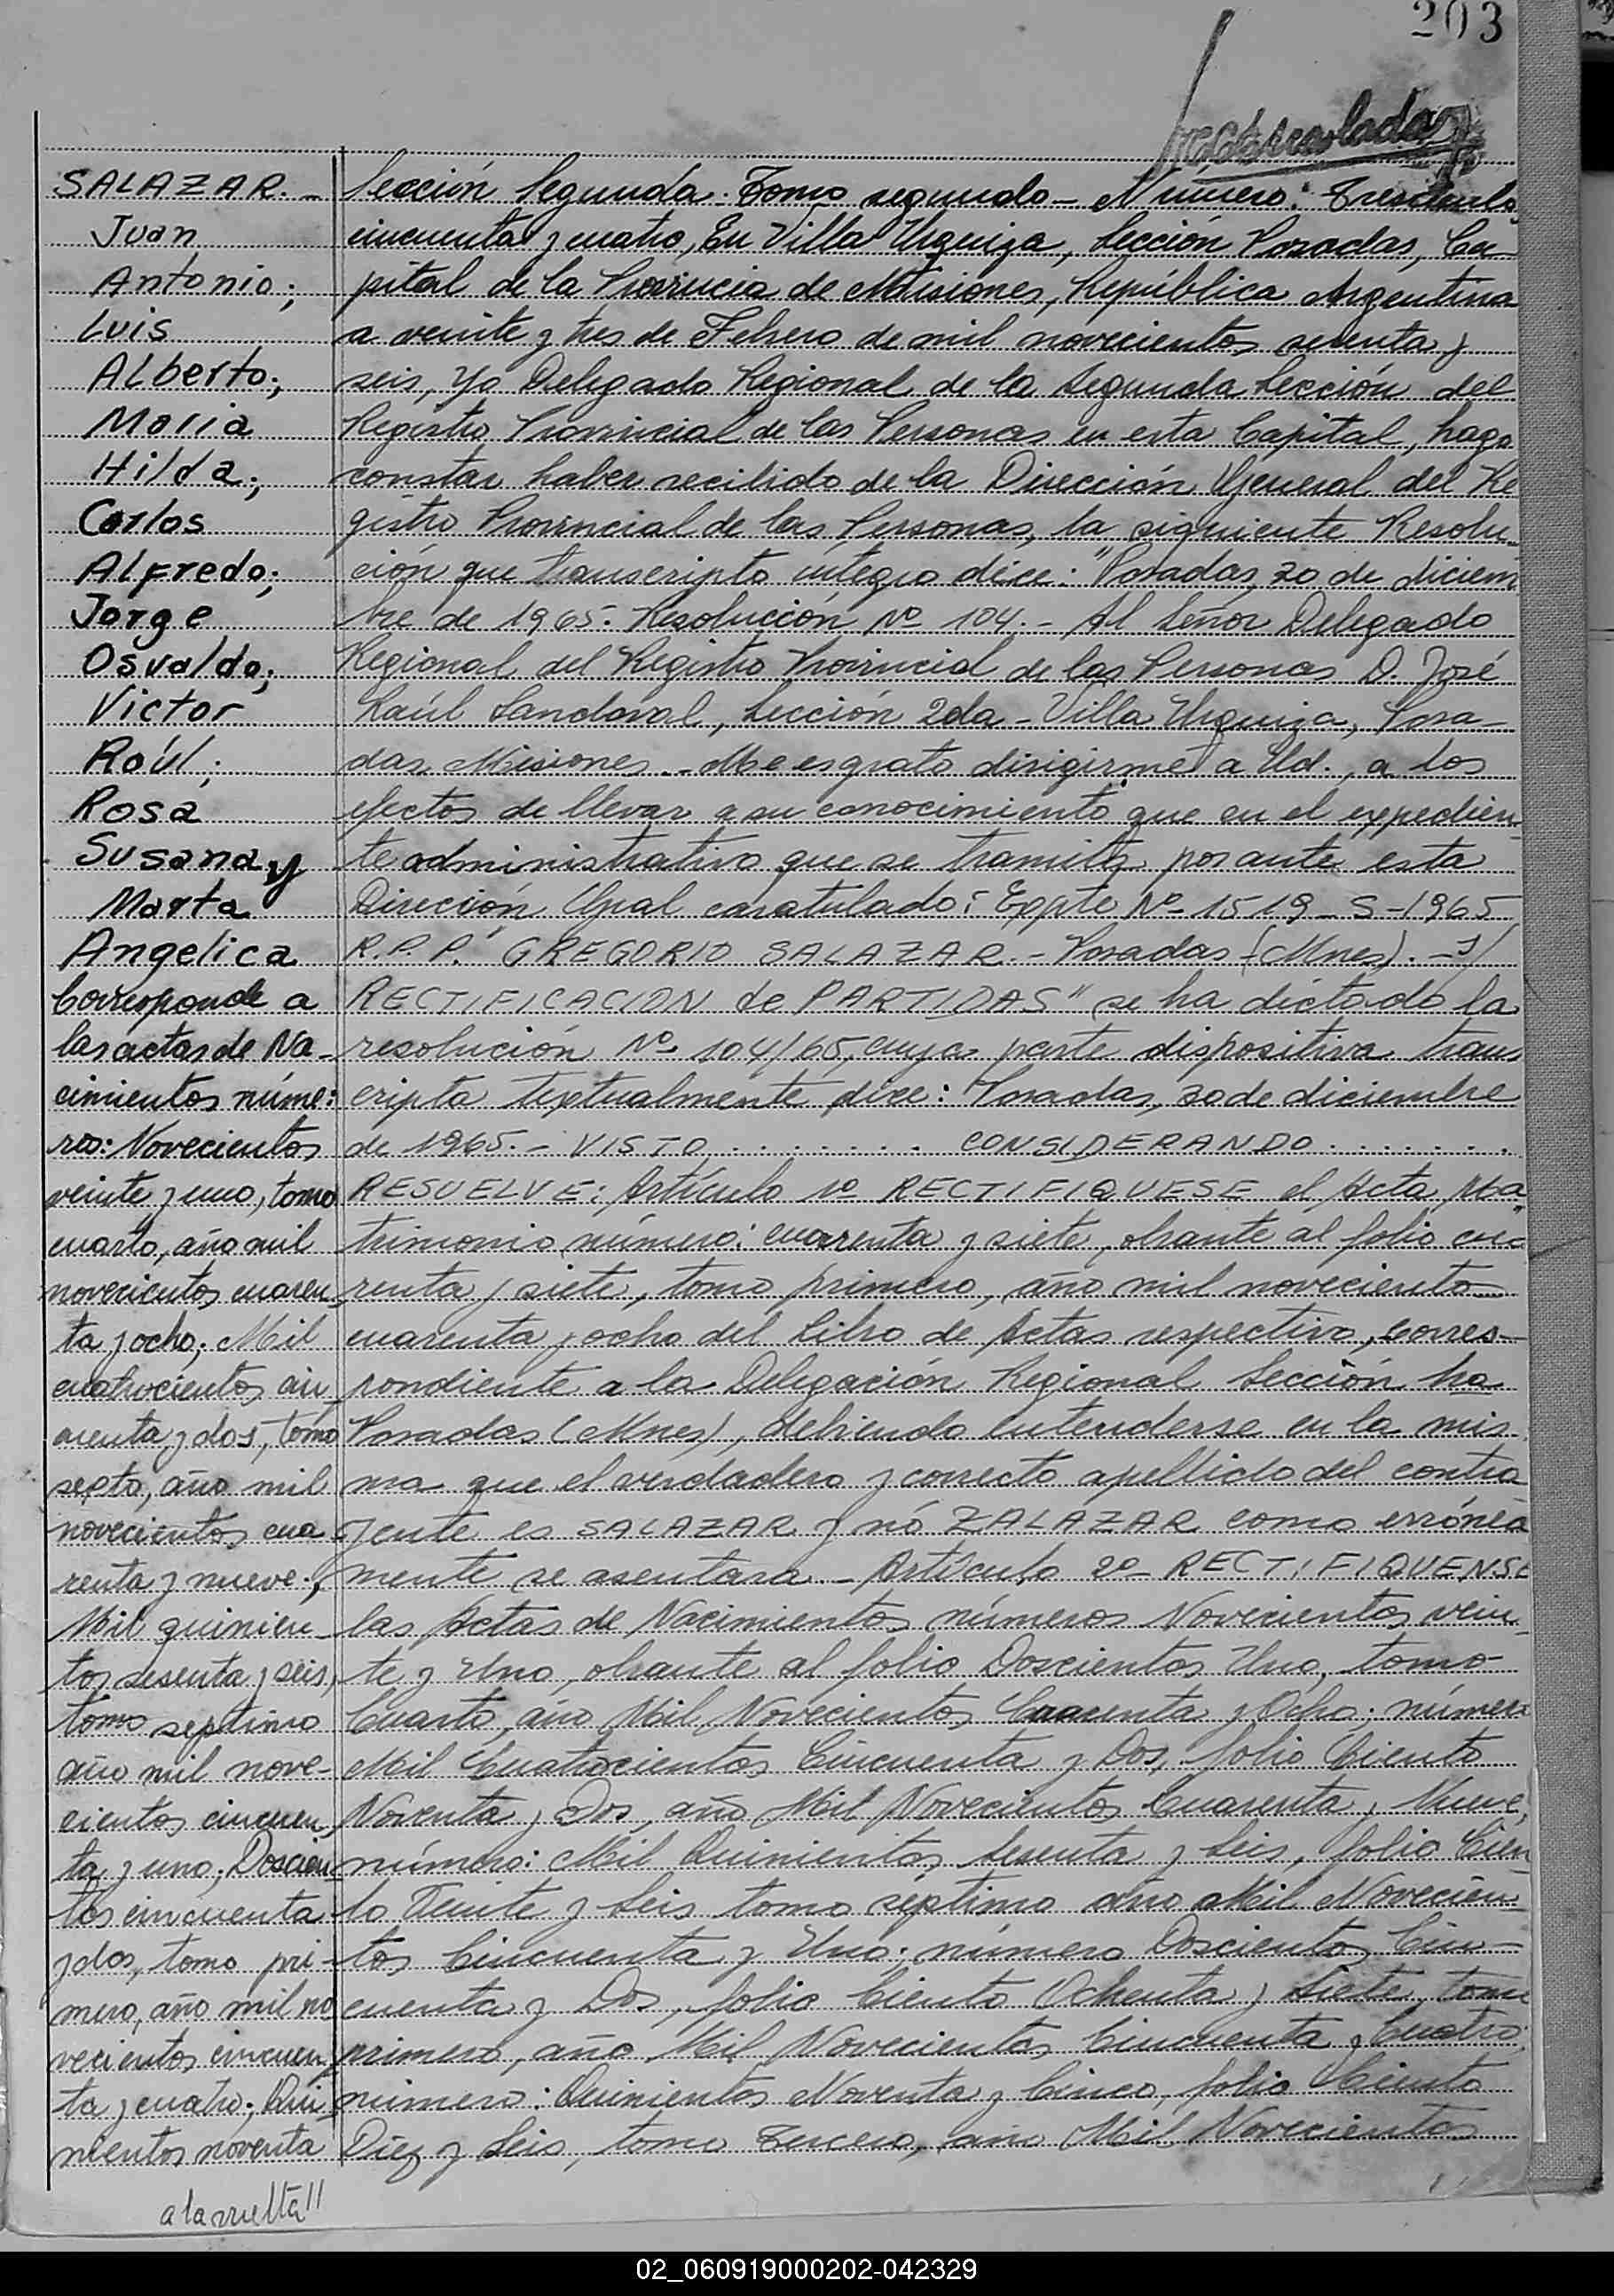 203
SALAZAR.-
Juan
Antonio;
Luis
Alberto;
Maria
Hilda;
Carlos
Alfredo;
Jorge
Osvaldo;
Victor
Raúl;
Rosa
Susana y
Marta
Angelica
Corresponde a
las actas de Na-
cimientos núme:
ros: Novecientos
veinte y uno, tomo
cuarto, año mil
novecientos cuaren
ta y ocho; Mil
cuatrocientos cin
cuenta y dos, tomo
septo, año mil
novecientos cua
renta y nueve;
Mil quinien
tos sesenta y seis,
tomo septimo
año mil nove-
cientos cincuen
ta y uno; Doscien
tos cincuenta
y dos, tomo pri-
mero, año mil no
vecientos cincuen
ta y cuatro; Qui
nientos noventa
a la vuelta!!
Sección Segunda. Tomo segundo - Número: Trescientos
cincuenta y cuatro, En Villa Urquiza, Sección Posadas, Ca-
pital de la Provincia de Misiones, República Argentina
a veinte y tres de Febrero de mil novecientos sesenta y
seis, Yo Delegado Regional de la Segunda Sección del
Registro Provincial de las Personas en esta Capital, hago
constar haber recibido de la Dirección General del Re
gistro Provincial de las Personas, la siguiente Resolu-
ción que transcripta íntegra dice: "Posadas, 30 de diciem
bre de 1965. Resolución Nº 104.- Al Señor Delegado
Regional del Registro Provincial de las Personas D. José
Raúl Sandoval, Sección 2da - Villa Urquiza, Posa-
das, Misiones.- Me es grato dirigirme a Ud., a los
efectos de llevar a su conocimiento que en el expedien
te administrativo que se tramita por ante esta
Dirección Gral caratulado: Eppte Nº 1519-S-1965
R.P.P. "GREGORIO SALAZAR.- Posadas (Mnes).- s/
RECTIFICACION de PARTIDAS" se ha dictado la
resolución Nº 104/65, cuya parte dispositiva trans
cripta textualmente dice: Posadas, 30 de diciembre
de 1965.- VISTO . . . . . . . CONSIDERANDO . . . . . . .
RESUELVE: Artículo 1º RECTIFIQUESE el Acta Ma
trimonio número: cuarenta y siete, obrante al folio cua
renta y siete, tomo primero, año mil novecientos
cuarenta y ocho del Libro de Actas respectivo, corres-
pondiente a la Delegación Regional Sección 1ra
Posadas (Mnes), debiendo entenderse en la mis-
ma que el verdadero y correcto apellido del contra
yente es SALAZAR y nó ZALAZAR como errónea
mente se asentara.- Artículo 2º RECTIFIQUENSE
las Actas de Nacimientos números Novecientos vein
te y Uno, obrante al folio Doscientos Uno, tomo
Cuarto, año Mil Novecientos Cuarenta y Ocho; número
Mil Cuatrocientos Cincuenta y Dos, folio Ciento
Noventa y Dos, año Mil Novecientos Cuarenta y Nueve;
número: Mil Quinientos Sesenta y Seis, folio Cien
to Veinte y Seis tomo séptimo año Mil Novecien-
tos Cincuenta y Uno; número Doscientos Cin-
cuenta y Dos, folio Ciento Ochenta y Siete, tomo
primero, año Mil Novecientos Cincuenta y Cuatro;
número: Quinientos Noventa y Cinco, folio Ciento
Diez y Seis, tomo Tercero, año Mil Novecientos
02_060919000202-042329